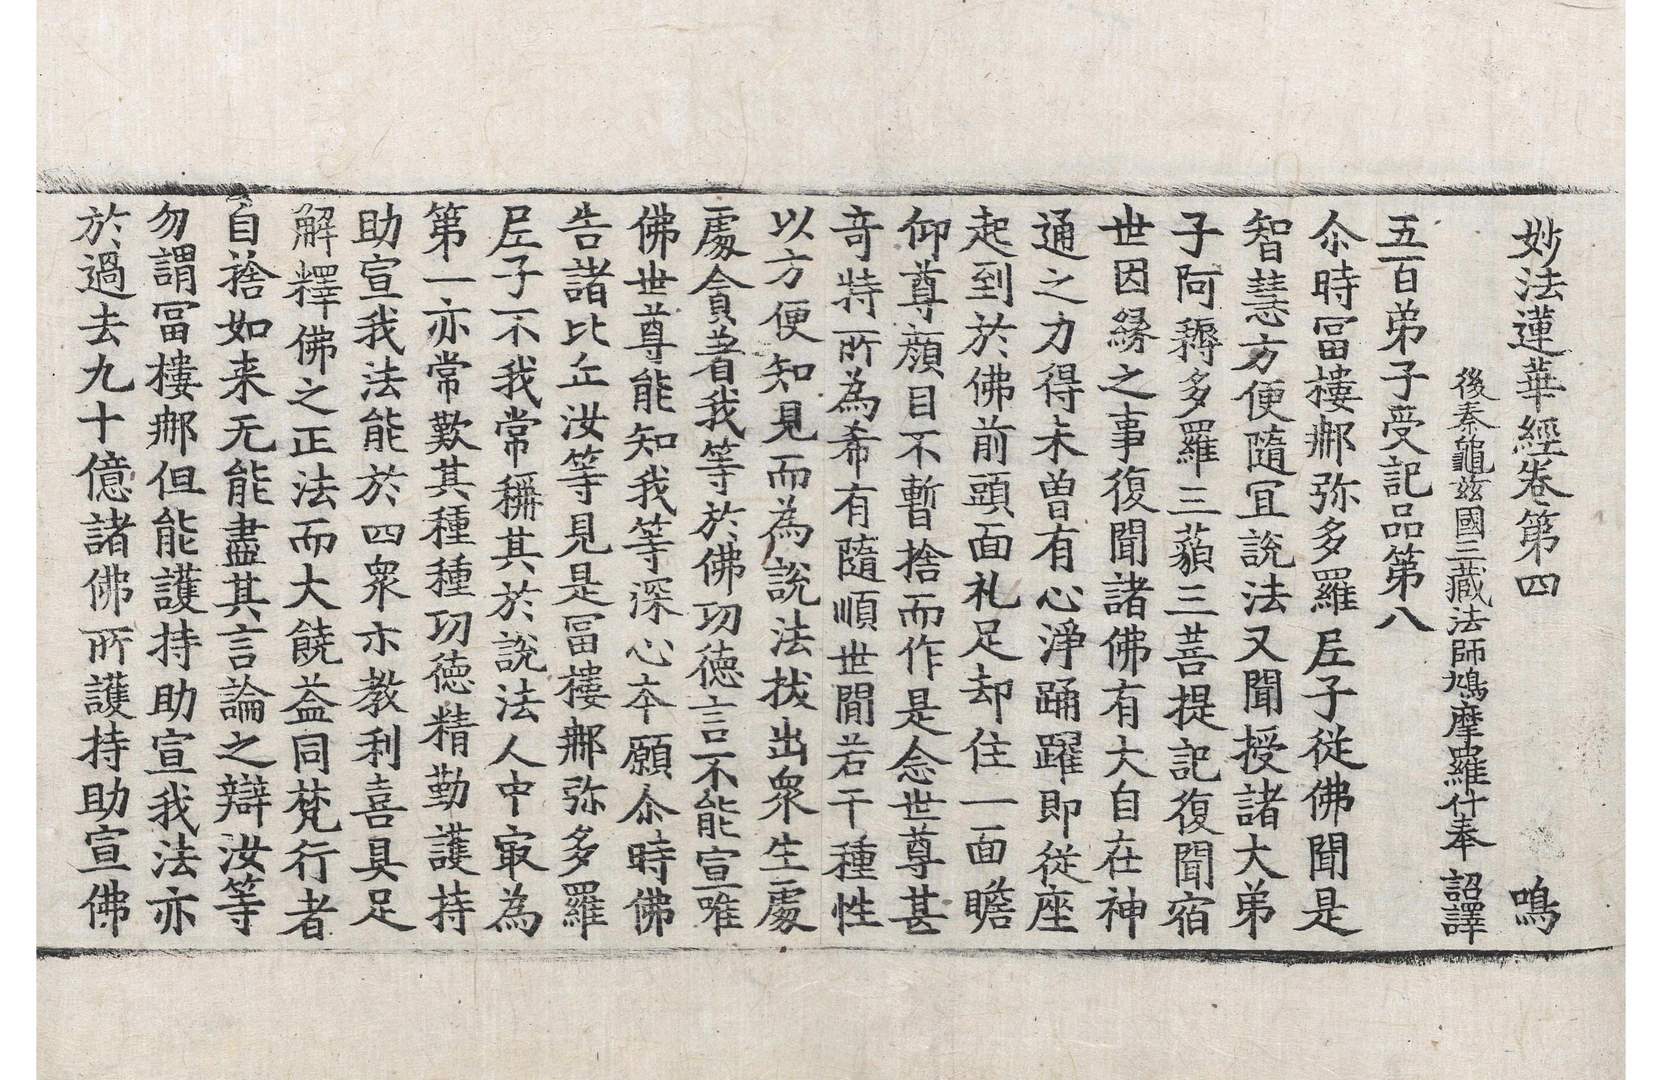 妙法蓮華經卷第四　鳴
後秦龜玆國三藏法師鳩摩羅什奉　詔譯
五百弟子受記品第八
尒時冨樓郍弥多羅𡰱子從佛聞是
智慧方便隨冝說法又聞授諸大弟
子阿耨多羅三藐三菩提記復聞宿
世因縁之事復聞諸佛有大自在神
通之力得未曾有心淨踊躍即從座
起到於佛前頭面礼足却住一面瞻
仰尊顔目不暫捨而作是念世尊甚
竒特所為希有隨順世間若干種性
以方便知見而為說法拔出衆生處
處貪著我等於佛功徳言不能宣唯
佛世尊能知我等深心夲願尒時佛
告諸比丘汝等見是冨樓郍弥多羅
𡰱子不我常稱其於說法人中㝡為
第一亦常歎其種種功徳精勤護持
助宣我法能於四衆示教利喜具足
解釋佛之正法而大饒益同梵行者
自捨如来无能盡其言論之辯汝等
勿謂冨樓郍但能護持助宣我法亦
於過去九十億諸佛所護持助宣佛